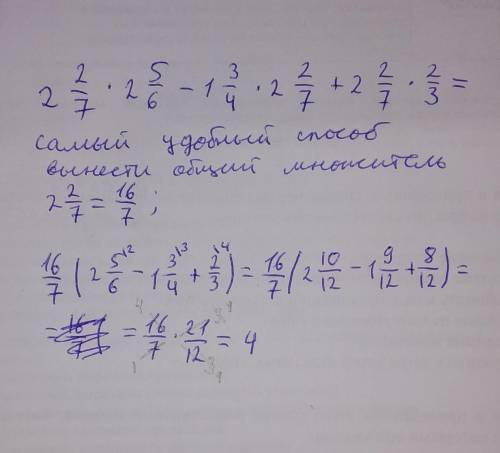 2 2/7 · 2 5/6 − 1 3/4 · 2 2/7 + 2 2/7 · 2/3 =
самый удобный способ
вынести общий множитель
2 2/7 = 16/7 ;
16/7 ( 2 5/6 \2 − 1 3/4 \3 + 2/3 \4 ) = 16/7 ( 2 10/12 − 1 9/12 + 8/12 ) =
= 16/7 · 21/12 = 4